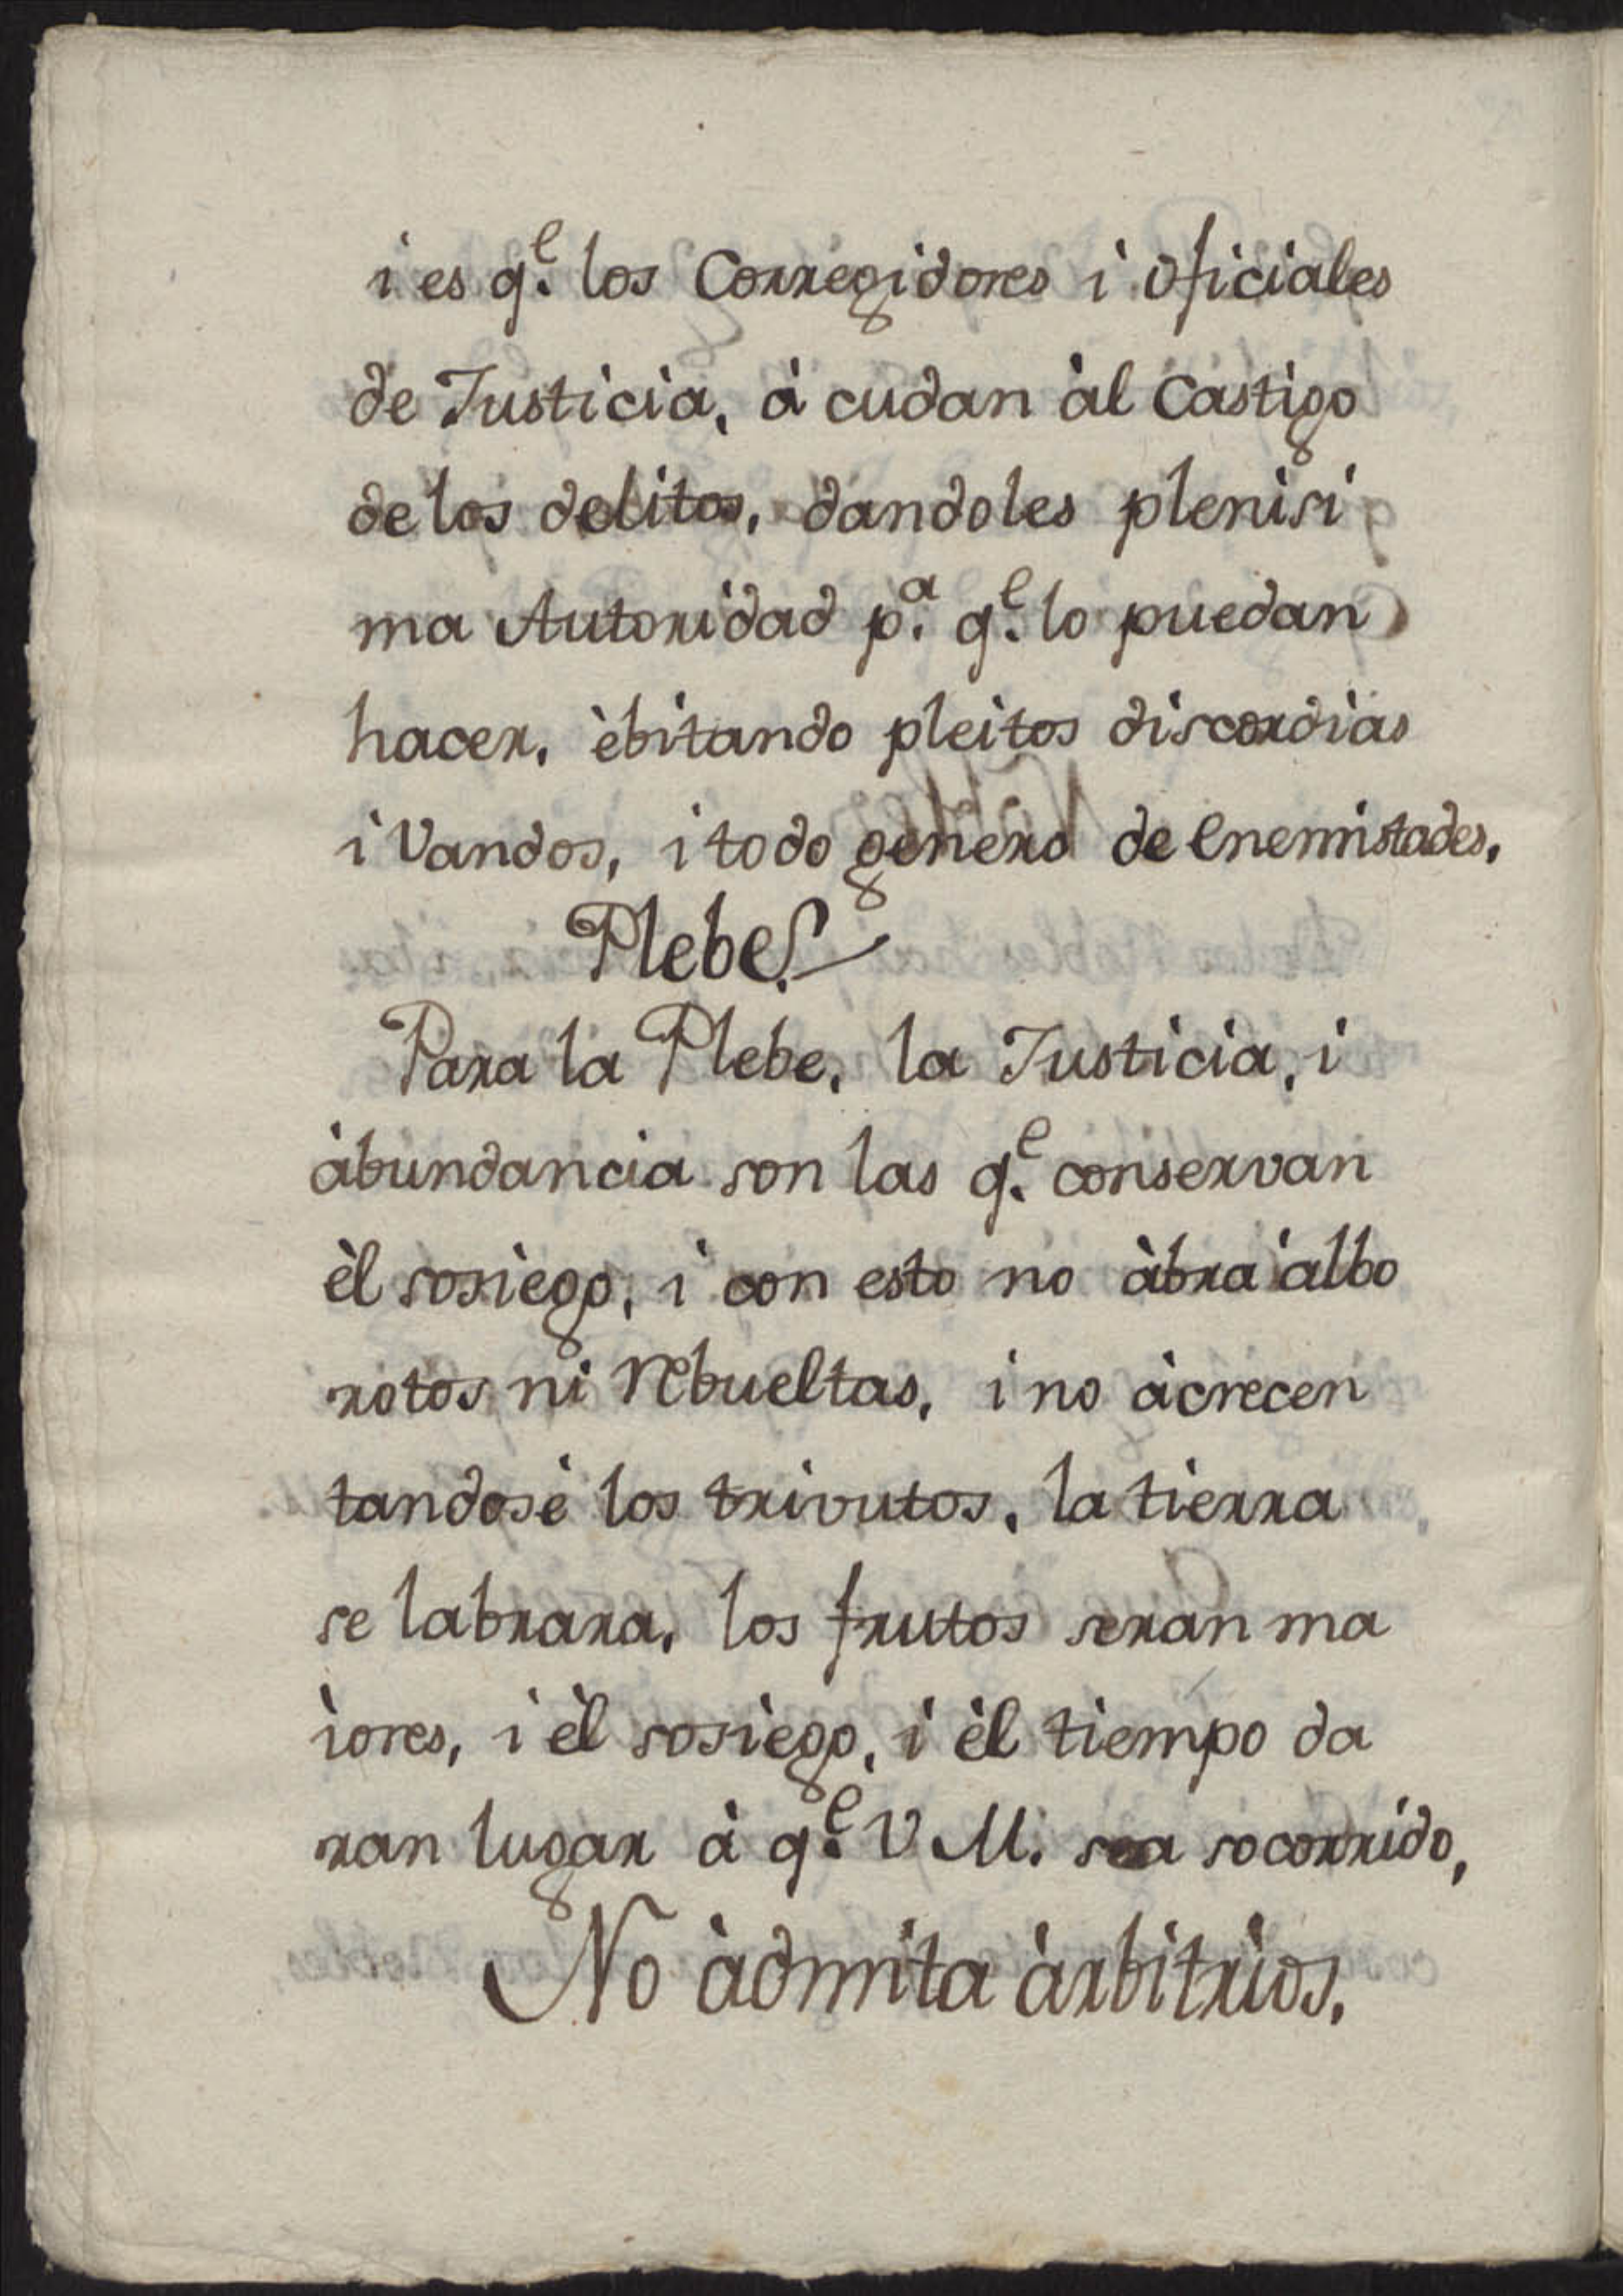 i es q.e los Corregidores i oficiales
de Justicia, à cudan àl Castigo
de los delitos, dandoles plenisi
ma Autoridad p.a q.e lo puedan
hacer, èbitando pleitos discordias
i Vandos, i todo genero de Enemistades,
Plebe.
Para la Plebe, la Justicia, i
àbundancia son las q.e conservan
èl sosiego, i con esto no àbra àlbo
rotos ni Rebueltas, i no àcrecen
tandose los trivutos, la tierra
se labrara, los frutos seran ma
iores, i èl sosiego, i èl tiempo da
ran lugar à q.e V M. sea socorrido,
No àdmita àrbitrios,